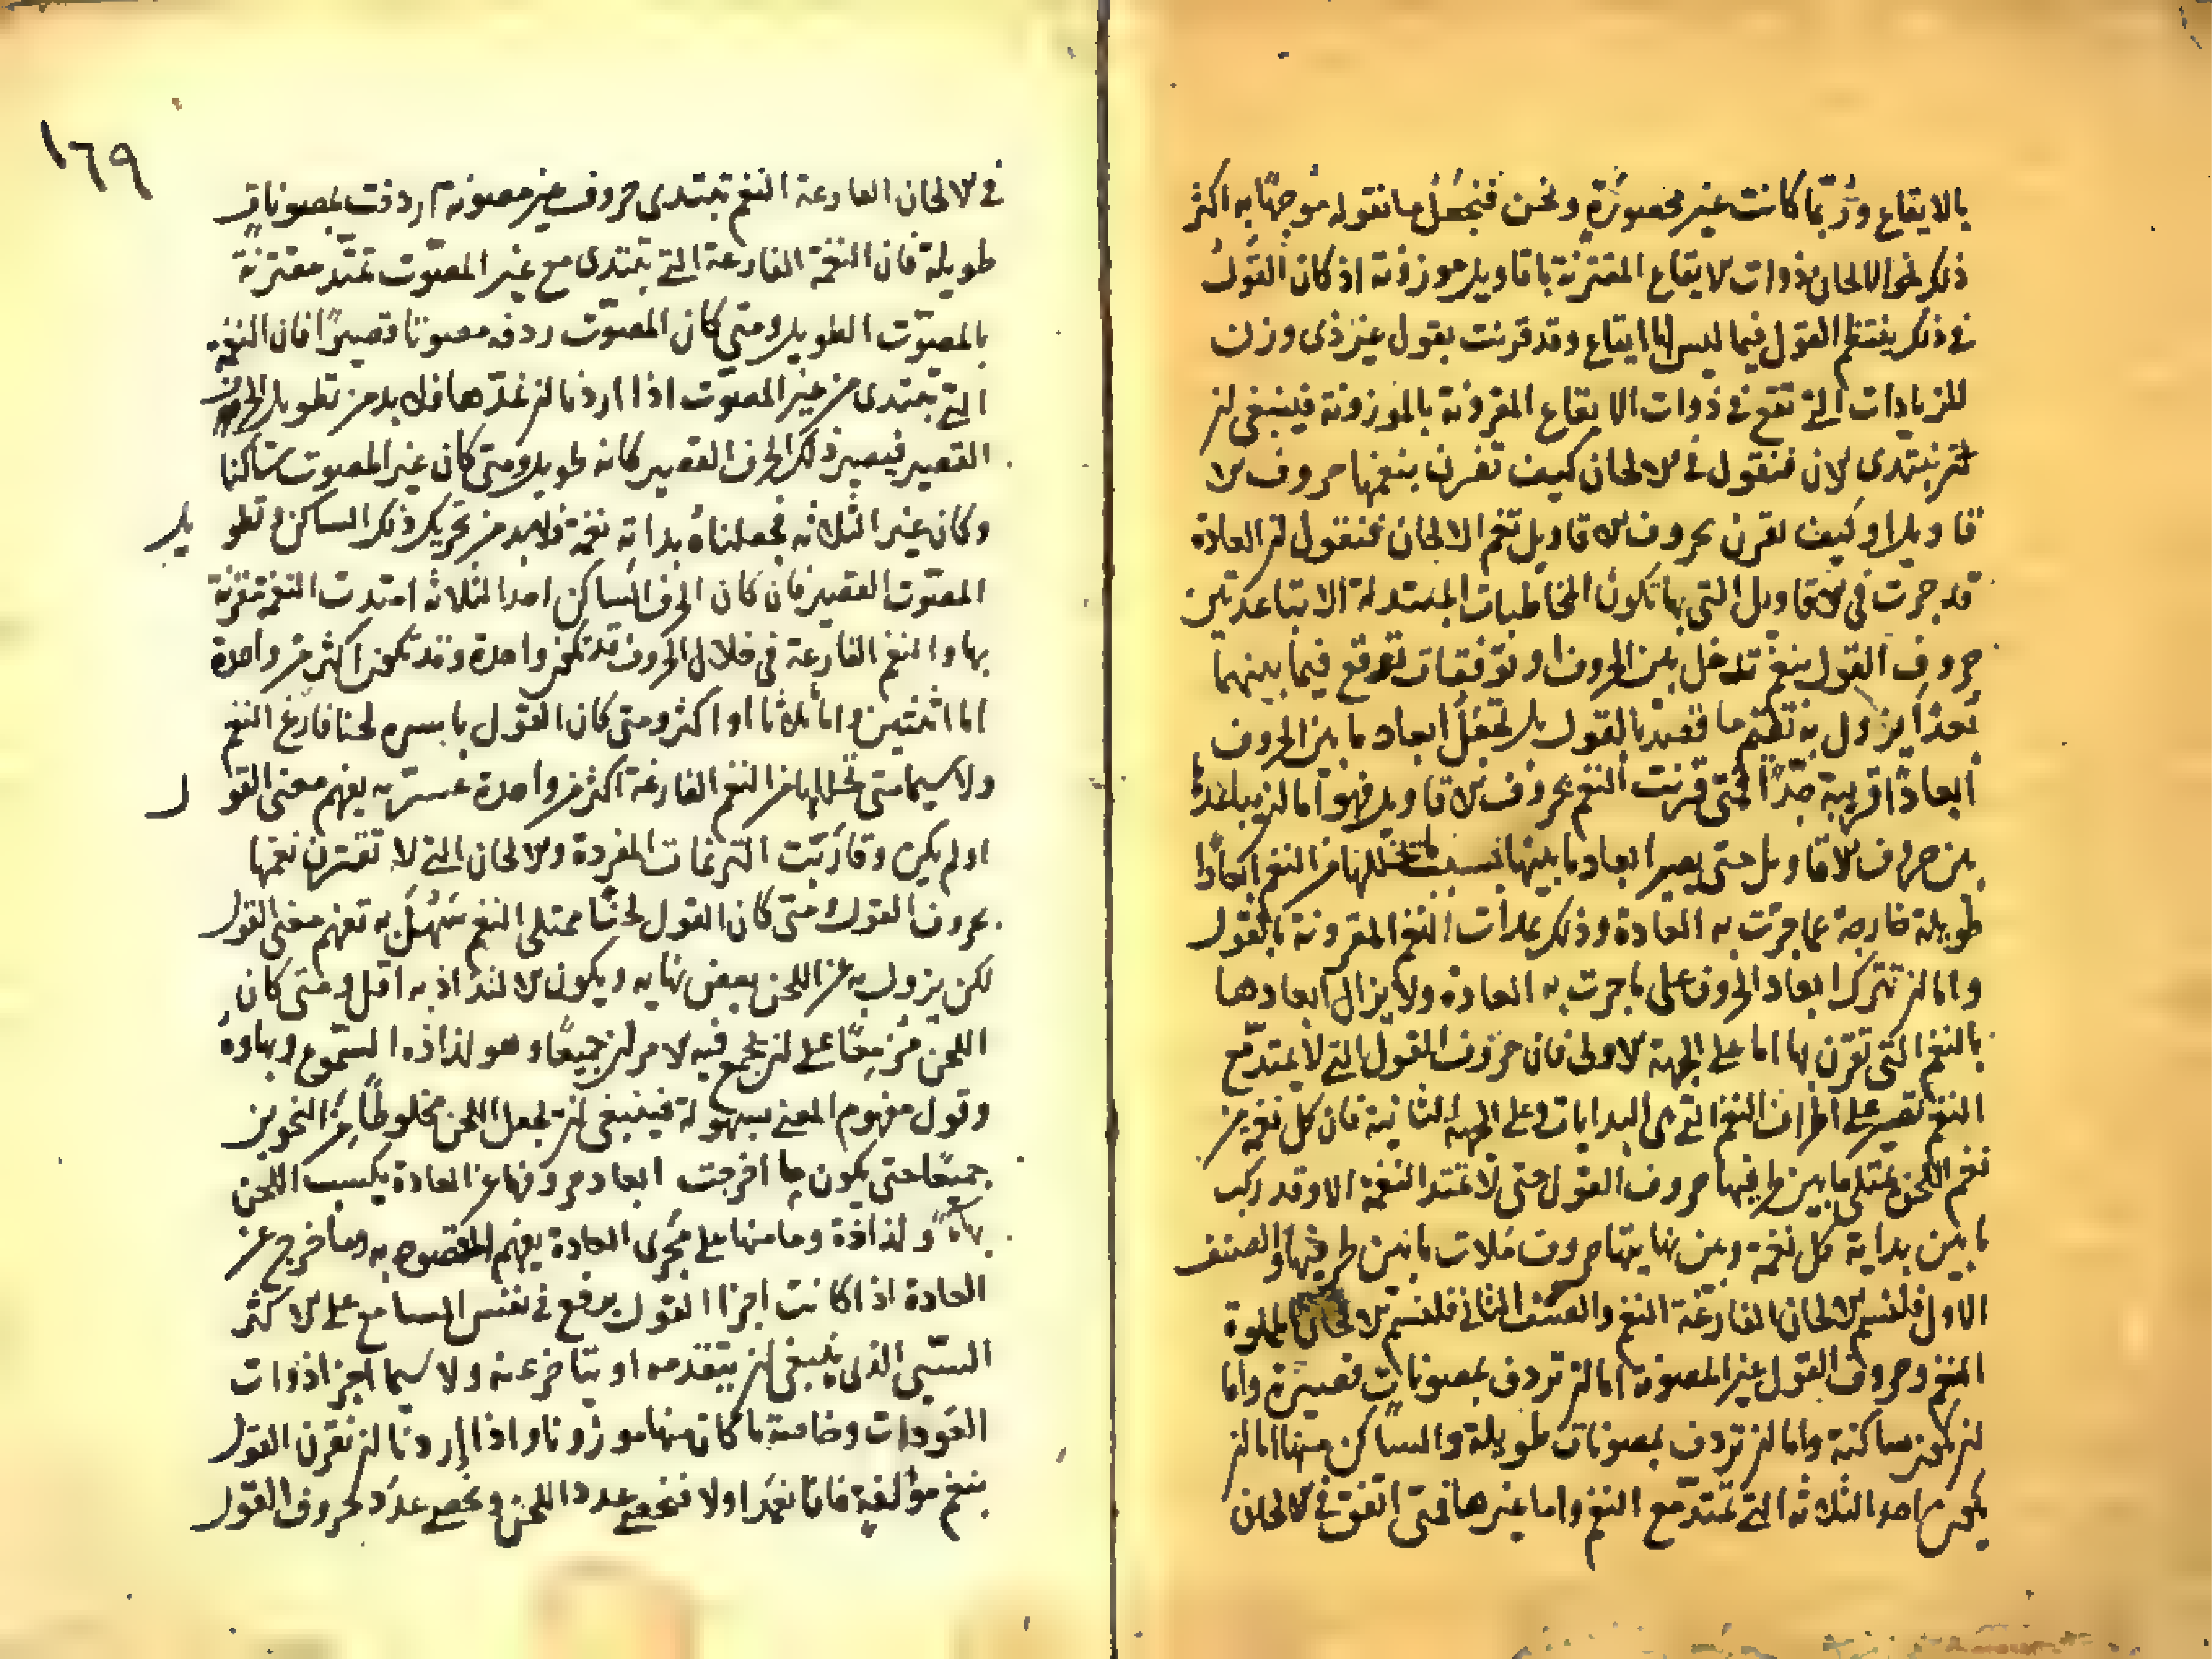 بالايقاع وربّما كانت غير محصورة ونحن فنجعل ما نقوله موجهًا به اكثر
ذلك نحو الالحان ذوات الايقاع المقترنة باقاويل موزونة اذ كان القول
في ذلك ينتظم القول فيما ليس لها ايقاع وقد قرنت بقول غير ذى وزن
للزيادات التي تقع في ذوات الايقاع المقرونة بالموزونة فينبغي ان
نبتدى الان فنقول في الالحان كيف تقرن بنغمها حروف الا
قاويل او كيف تقرن بحروف الاقاويل نغم الالحان فنقول ان العادة
قد جرت في الاقاويل التي بها تكون المخاطبات ان لا يتباعد بين
حروف القول بنغم تدخل بين الحروف او توقفات توقع فيما بينهما
بُعدًا يزول به تفهّم ما قصد بالقول بل تجعل ابعاد ما بين الحروف
ابعادًا قريبة جدًّا فمتى قرنت النغم بحروف الاقاويل فهو اما ان يباعد
بين حروف الاقاويل حتى يصير ابعاد ما بينها بسبب ما تخللها من النغم ابعادًا
طويلة خارجة عما جرت به العادة وذلك بمدات النغم المقرونة بالقول
واما ان تترك ابعاد الحروف على ما جرت به العادة ولا يزال ابعادها
بالنغم التي تقرن بها اما على الجهة الاولى فان حروف القول التي لا يمتد مع
النغم تصير على اطراف النغم التي هي البدايات وعلى الجهة الثانية فان كل نغمة من
نغم اللحن تمتلى ما بين طرفيها حروف القول حتى لا تمتد النغمة الا وقد ركب
ما بين بداية كل نغمة وبين نهايتها حروف ملات ما بين طرفيها والصنف
الاول فلنسم الالحان الفارغة النغم والصنف الثاني فلنسم الالحان المملوة
النغم وحروف القول غير المصوتة اما ان تردف بمصوتات قصيرة واما
ان تكون ساكنة واما ان تردف بمصوتات طويلة والساكن منها اما ان
يكون احد الثلاثه التي تمتد مع النغم واما غيرها فمتى اتفق في الالحان
١٦٩
في الالحان الفارغة النغم تبتدى حروف غير مصوتة اردفت بمصوتات
طويلة فان النغمة الفارغة التي تبتدى مع غير المصوّت تمتد مقترنة
بالمصوّت الطويل ومتى كان المصوّت ردف مصوتا قصيرًا فان النغمة
التي تبتدى من غير المصوت اذا اردنا ان نمدّها فلا بد من تطويل الحرف
القصير فيصير ذلك الحرف القصير كانه طويل ومتى كان غير المصوت ساكنا
وكان غير الثلاثه فجعلناه بداية نغمة فلابد من تحريك ذلك الساكن وتطو يل
المصوّت القصير فان كان الحرف الساكن احد الثلاثه امتدت النغمة مقترنة
بها والنغم الفارغة في خلال الحروف قد تكون واحدة وقد تكون اكثر من واحدة
اما اثنتين واما ثلاثا او اكثر ومتى كان القول باسره لحنا فارغ النغم
ولاسيما متى تخللها من النغم الفارغة اكثر من واحدة عسر به يفهم معنى القو ل
او لم يكن وقاربت الترنمات المفردة والالحان التي لا تقترن نغمها
بحروف القول ومتى كان القول لحنًا ممتلى النغم سَهُل به تفهم معنى القول
لكن يزول به عن اللحن بعض بهايه ويكون الالتذاذ به اقل ومتى كان
اللحن مُزمعًا على ان يجمع فيه الامران جميعًا وهو لذاذه المسموع وبهاوه
وقول مفهوم المعنى بسهولة فينبغي ان تجعل اللحن مخلوطًا من النحوين
جميعًا حتى يكون ما اخرجت ابعاد حروفها عن العادة يكسب اللحن
بهاءً ولذاذة وما منها على مجرى العادة يفهم المقصود به وما خرج عن
العادة اذا كانت اجزا القول يرفع في نفس السامع على الاكثر
الشيء الذى ينبغي ان يتقدمه او يتاخر عنه ولا سيما اجزا ذوات
العودات وخاصة ما كان منها موزونا واذا اردنا ان نقرن القول
بنغم مؤلفة فانا نعمد اولا فنحصي عدد اللحن ونحصي عدد حروف القول